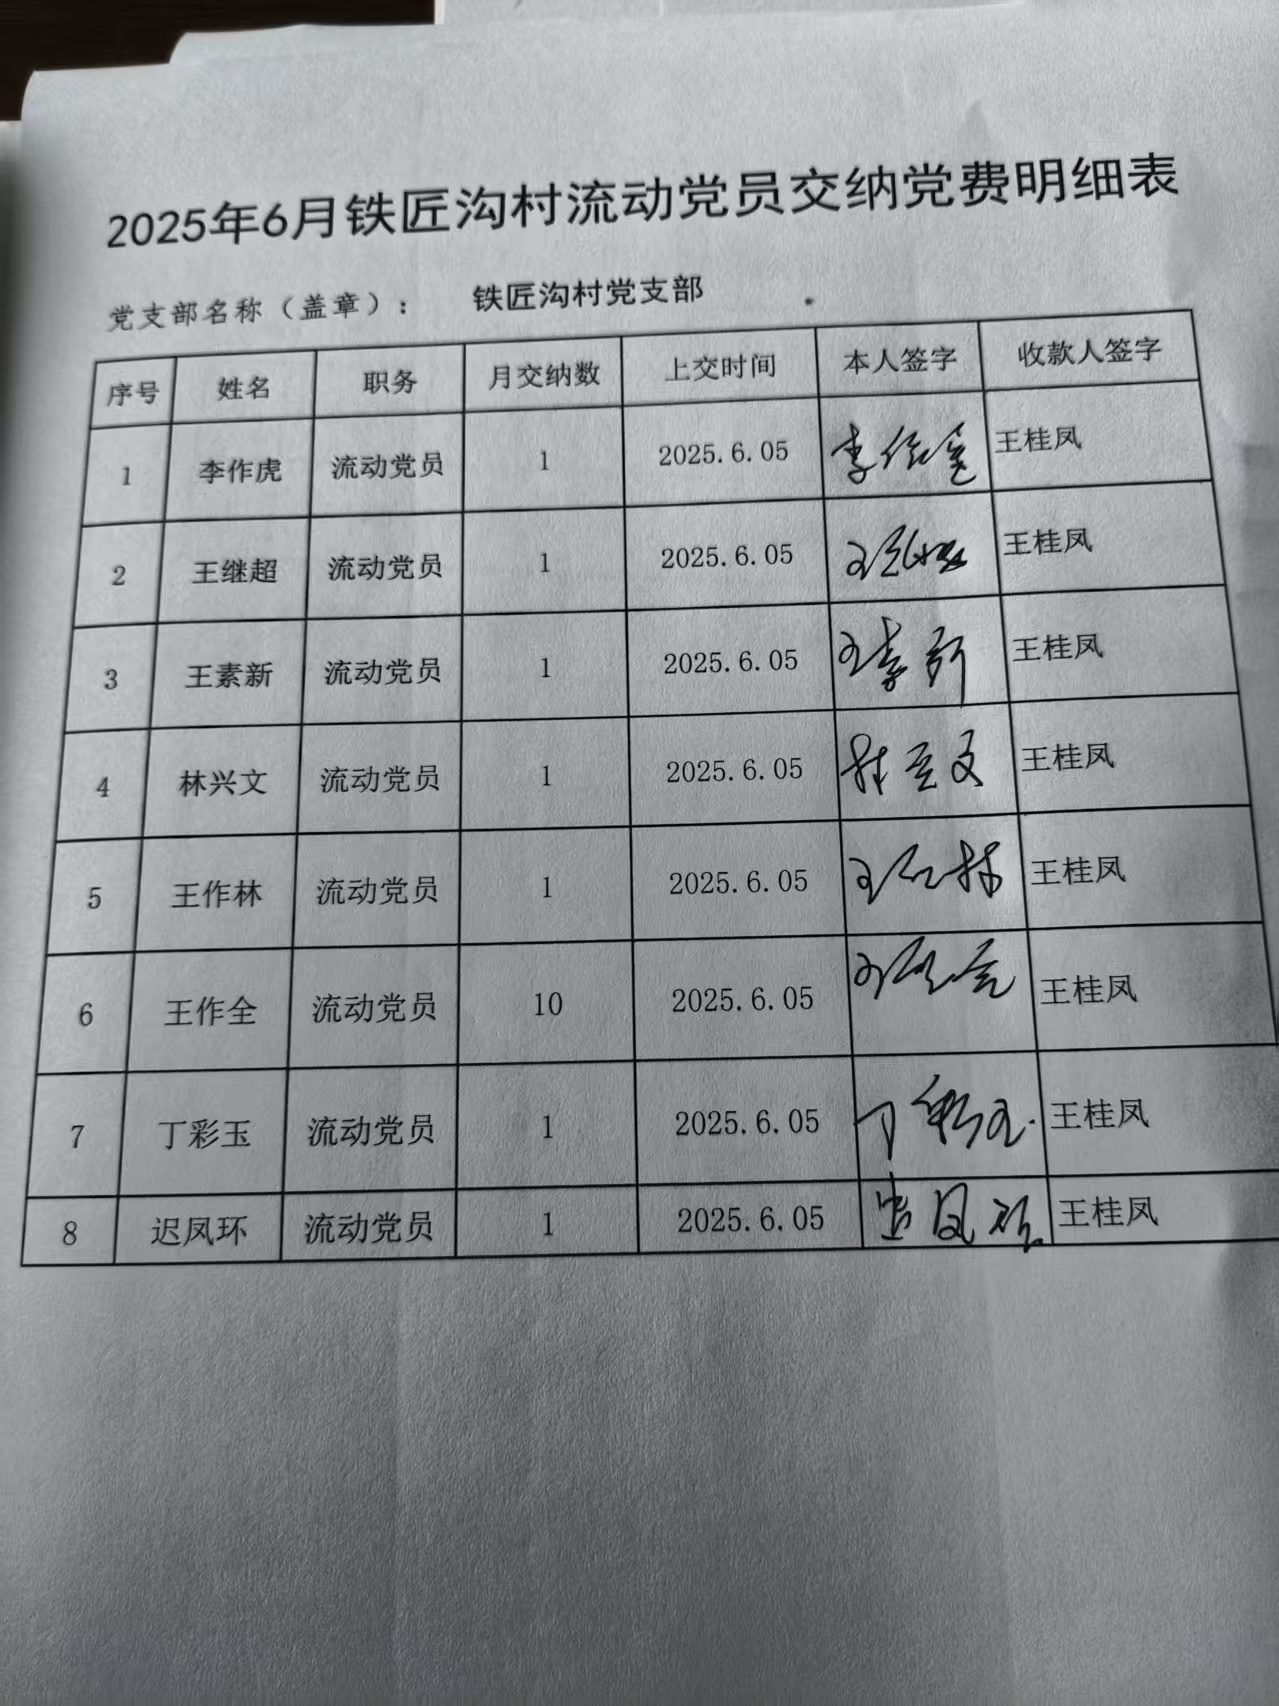 2025年6月铁匠沟村流动党员交纳党费明细表
党支部名称（盖章）： 铁匠沟村党支部
序号 姓名 职务 月交纳数 上交时间 本人签字 收款人签字
1 李作虎 流动党员 1 2025.6.05 李作虎 王桂凤
2 王继超 流动党员 1 2025.6.05 王继超 王桂凤
3 王素新 流动党员 1 2025.6.05 王素新 王桂凤
4 林兴文 流动党员 1 2025.6.05 林兴文 王桂凤
5 王作林 流动党员 1 2025.6.05 王作林 王桂凤
6 王作全 流动党员 10 2025.6.05 王作全 王桂凤
7 丁彩玉 流动党员 1 2025.6.05 丁彩玉 王桂凤
8 迟凤环 流动党员 1 2025.6.05 迟凤环 王桂凤